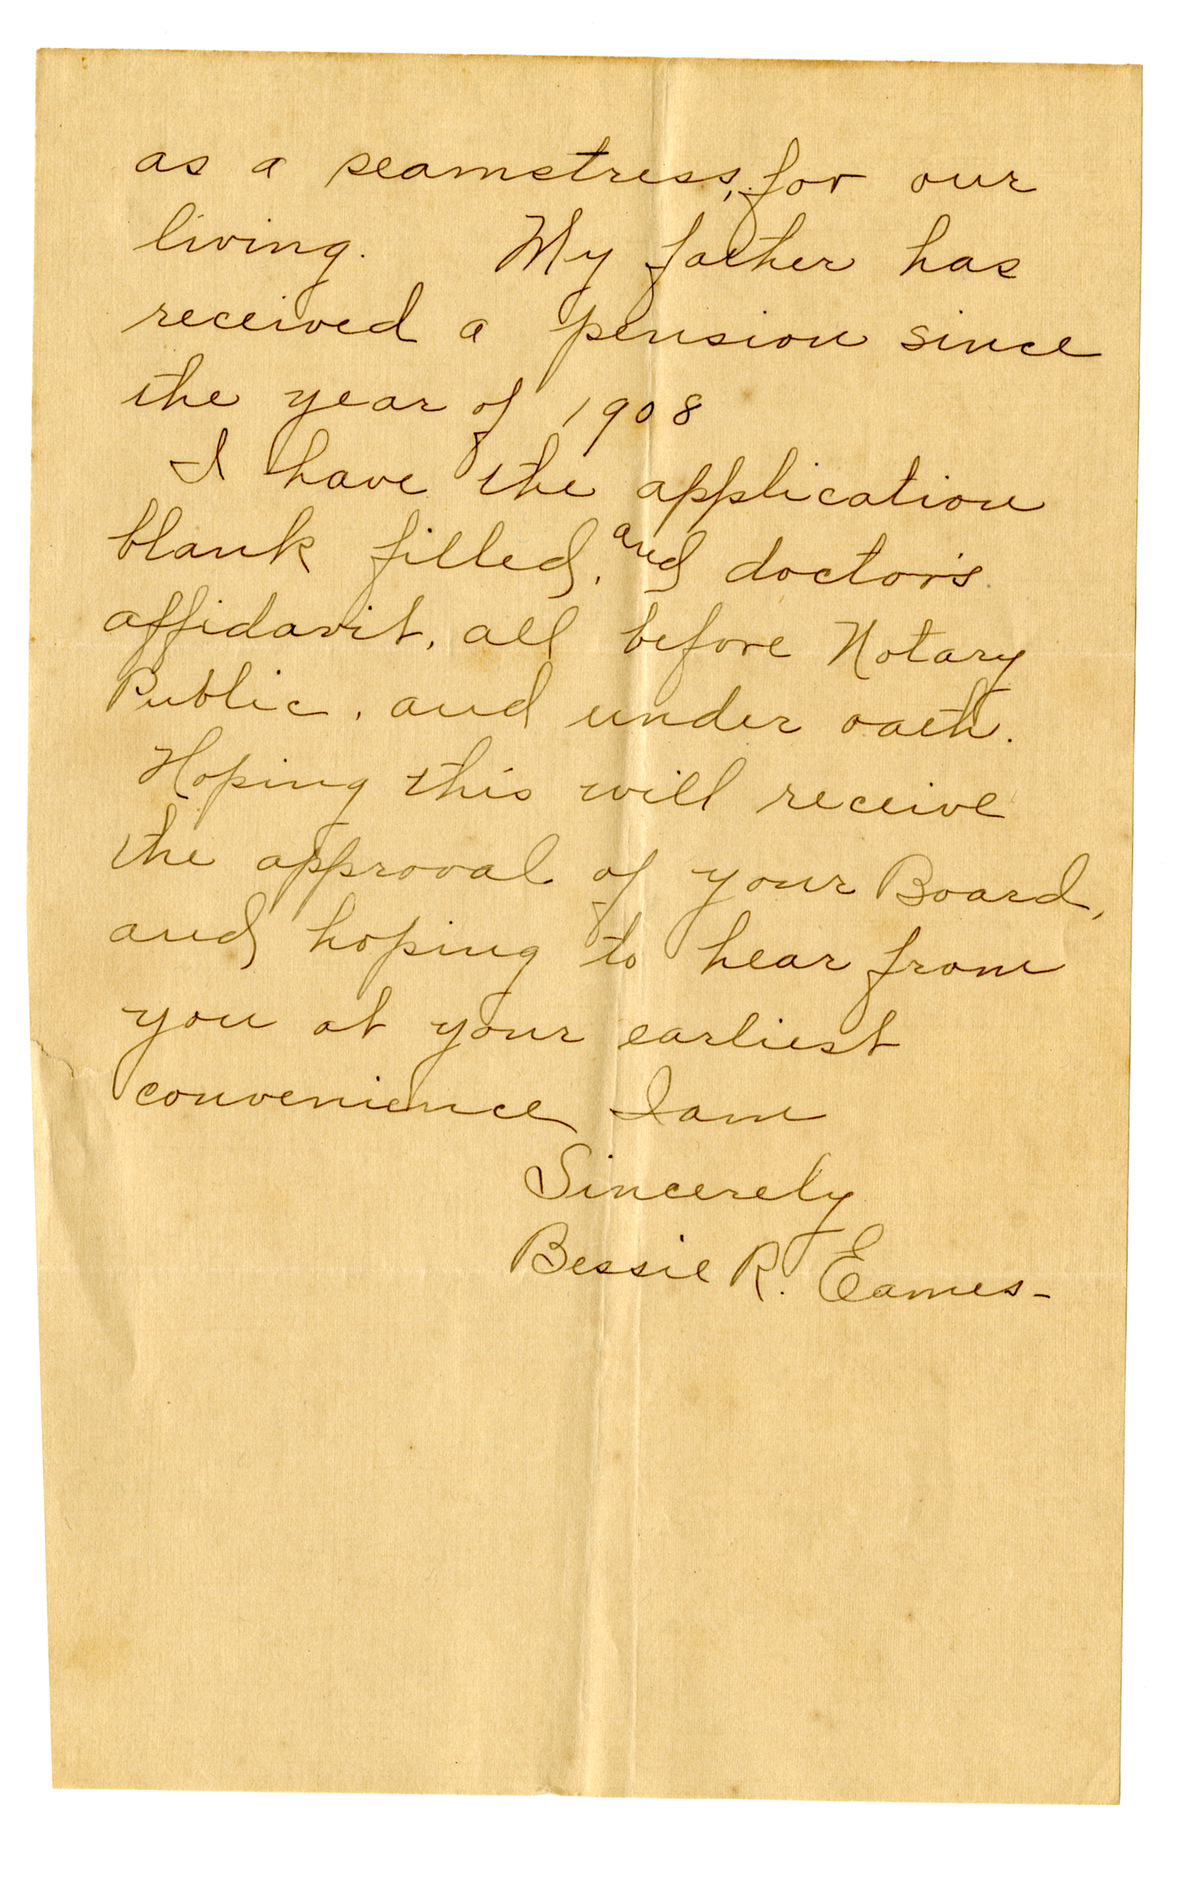 as a seamstress, for our
living. My father has
received a pension since
the year of 1908
I have the application
blank filled, and doctor's
affidavit, all before Notary
Public, and under oath.
Hoping this will receive
the approval of your Board,
and hoping to hear from
you at your earliest
convenience I am
Sincerely
Bessie R. Eames-